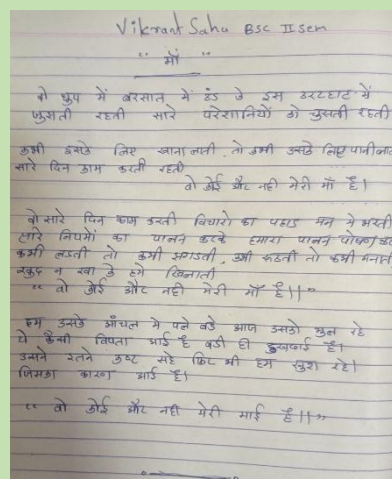 Vikrant Sahu BSC II Sem
" माँ "
वो धुप में बरसात में ठंड के इस
रहती सारे परेशानियों को रहती
कभी इसके लिए खाना लाती, तो कभी उसके लिए पानी
सारे दिन काम करती रहती
वो कोई और नही मेरी माँ है।
वो सारे दिन काम करती विचारो का पहाड़ मन में भरती
सारे नियमों का पालन करके हमारा पालन पोषण
कभी लडती तो कभी झगडती, कभी रूठती तो कभी मनाती
खुद न खा के हमे खिलाती
" वो कोई और नही मेरी माँ है।।"
हम उसके आँचल मे पले बडे आज उसको भुल रहे
ये कैसी विपता आई है बडी ही दुखदाई है।
उसने इतने कष्ट सहे फिर भी हम खुश रहे।
जिसका कारण माई है।
" वो कोई और नही मेरी माई है।।"